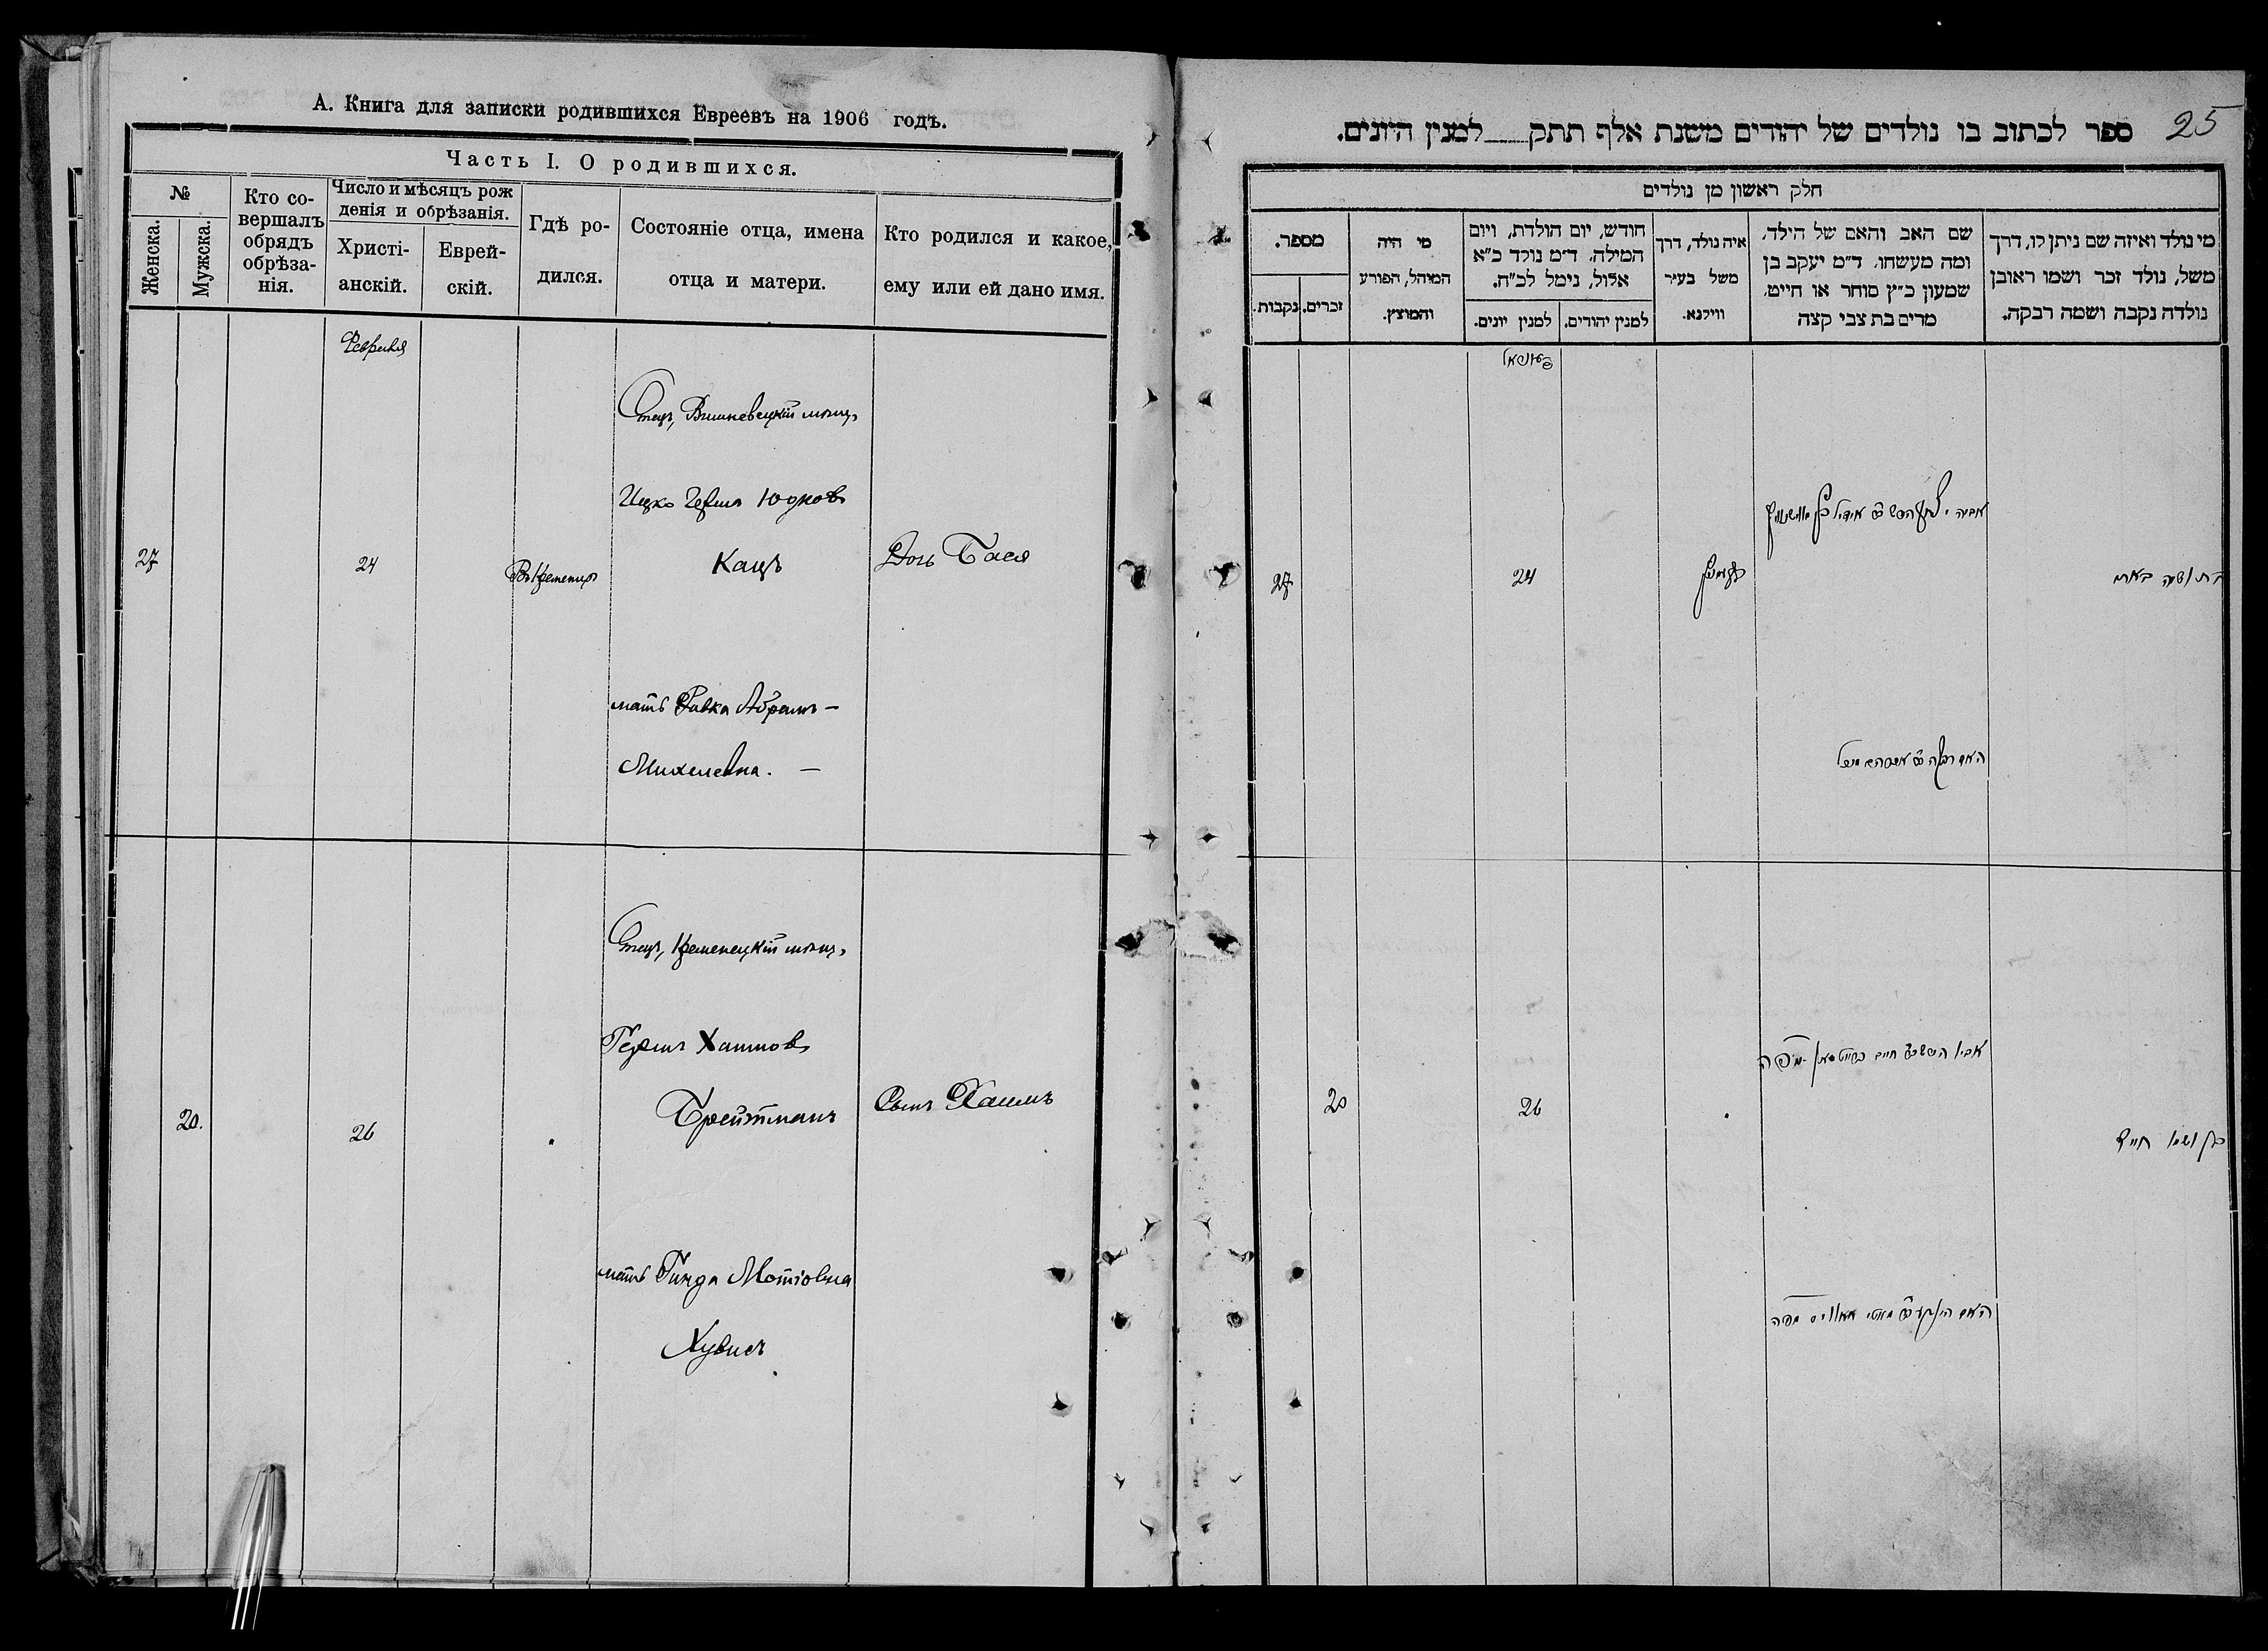 А. Книга для записки родившихся Евреевъ на 1906 годъ.
Часть I. О родившихся.
№
Женска.
Мужска.
Кто со-
вершалъ
обрядъ
обрѣза-
нія.
Число и мѣсяцъ рож
денія и обрѣзанія.
Христі-
анскій.
Еврей-
скій.
Гдѣ ро-
дился.
Состояніе отца, имена
отца и матери.
Кто родился и какое,
ему или ей дано имя.
Февраля
27
24
Въ Кременцѣ
Отецъ, Вишневецкій мѣщ.
Ицко Герша Юдков
Кацъ
мать Ривка Абрамъ-
Михелевна. —
Дочь Бася
20.
26
Отецъ, Кременецкій мѣщ.
Гершъ Хаимов
Брейтманъ
мать Гинда Мотіовна
Хувисъ
Сынъ Хаимъ
25
ספר לכתוב בו נולדים של יהודים משנת אלף תתק למנין היונים.
חלק ראשון מן נולדים
מספר.
נקבות.
זכרים.
מי היה
המוהל, הפורע
והמוצץ.
חודש, יום הולדת, ויום
המילה. ד״מ נולד כ״א
אלול, נימל לכ״ח.
למנין יונים.
למנין יהודים.
איה נולד, דרך
משל בעיר
ווילנא.
שם האב והאם של הילד,
ומה מעשהו. ד״מ יעקב בן
שמעון כ״ץ סוחר או חייט,
מרים בת צבי קצה
מי נולד ואיזה שם ניתן לו, דרך
משל, נולד זכר ושמו ראובן
נולדה נקבה ושמה רבקה.
27
24
20
26
בן ושמו חיים